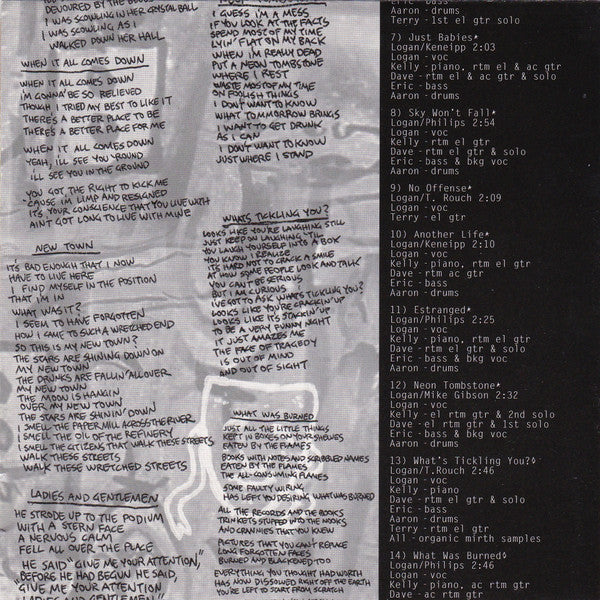 DEVOURED BY THE
I WAS SCOWLING IN HER CRYSTAL BALL
I WAS SCOWLING AS I
WALKED DOWN HER HALL
WHEN IT ALL COMES DOWN
WHEN IT ALL COMES DOWN
I'M GONNA BE SO RELIEVED
THOUGH I TRIED MY BEST TO LIKE IT
THERE'S A BETTER PLACE TO BE
THERE'S A BETTER PLACE FOR ME
WHEN IT ALL COMES DOWN
YEAH, I'LL SEE YOU 'ROUND
I'LL SEE YOU IN THE GROUND
YOU GOT THE RIGHT TO KICK ME
'CAUSE I'M LIMP AND RESIGNED
IT'S YOUR CONSCIENCE THAT YOU LIVE WITH
AIN'T GOT LONG TO LIVE WITH MINE
NEW TOWN
IT'S BAD ENOUGH THAT I NOW
HAVE TO LIVE HERE
I FIND MYSELF IN THE POSITION
THAT I'M IN
WHAT WAS IT?
I SEEM TO HAVE FORGOTTEN
HOW I CAME TO SUCH A WRETCHED END
SO THIS IS MY NEW TOWN?
THE STARS ARE SHINING DOWN ON
MY NEW TOWN
THE DRUNKS ARE FALLIN' ALL OVER
MY NEW TOWN
THE MOON IS HANGIN
OVER MY NEW TOWN
THE STARS ARE SHININ' DOWN
I SMELL THE PAPER MILL ACROSS THE RIVER
I SMELL THE OIL OF THE REFINERY
I SMELL THE CITIZENS THAT WALK THESE STREETS
WALK THESE STREETS
WALK THESE WRETCHED STREETS
LADIES AND GENTLEMEN
HE STRODE UP TO THE PODIUM
WITH A STERN FACE
A NERVOUS CALM
FELL ALL OVER THE PLACE
HE SAID "GIVE ME YOUR ATTENTION,"
BEFORE HE HAD BEGUN HE SAID,
"GIVE ME YOUR ATTENTION
LADIES AND GENTLEMEN"
I GUESS I'M A MESS
IF YOU LOOK AT THE FACTS
SPEND MOST OF MY TIME
LYIN' FLAT ON MY BACK
WHEN I'M REALLY DEAD
PUT A NEON TOMBSTONE
WHERE I REST
WASTE MOST OF MY TIME
ON FOOLISH THINGS
I DON'T WANT TO KNOW
WHAT TOMMORROW BRINGS
I WANT TO GET DRUNK
AS I CAN
I DON'T WANT TO KNOW
JUST WHERE I STAND
WHAT'S TICKLING YOU?
LOOKS LIKE YOU'RE LAUGHING STILL
JUST KEEP ON LAUGHING 'TIL
YOU LAUGH YOURSELF INTO A BOX
YOU KNOW I REALIZE
IT'S HARD NOT TO CRACK A SMILE
AT HOW SOME PEOPLE LOOK AND TALK
YOU CAN'T BE SERIOUS
BUT I AM CURIOUS
I'VE GOT TO ASK WHAT'S TICKLING YOU?
LOOKS LIKE YOU'RE CRACKIN' UP
LOOKS LIKE IT'S STACKIN' UP
TO BE A VERY FUNNY NIGHT
IT JUST AMAZES ME
THE FACE OF TRAGEDY
IS OUT OF MIND
AND OUT OF SIGHT
WHAT WAS BURNED
JUST ALL THE LITTLE THINGS
KEPT IN BOXES ON YOUR SHELVES
EATEN BY THE FLAMES
BOOKS WITH NOTES AND SCRIBBLED NAMES
EATEN BY THE FLAMES
THE ALL-CONSUMING FLAMES
SOME FAULTY WIRING
HAS LEFT YOU DESIRING WHAT WAS BURNED
ALL THE RECORDS AND THE BOOKS
TRINKETS STUFFED INTO THE NOOKS
AND CRANNIES THAT YOU KNEW
PICTURES THAT YOU CAN'T REPLACE
LONG FORGOTTEN FACES
BURNED AND BLACKENED TOO
EVERYTHING YOU THOUGHT HAD WORTH
HAS NOW DISSOLVED RIGHT OFF THE EARTH
YOU'RE LEFT TO START FROM SCRATCH
Eric - bass
Aaron - drums
Terry - 1st el gtr solo
7) Just Babies*
Logan/Keneipp 2:03
Logan - voc
Kelly - piano, rtm el & ac gtr
Dave - rtm el & ac gtr & solo
Eric - bass
Aaron - drums
8) Sky Won't Fall*
Logan/Philips 2:54
Logan - voc
Kelly - rtm el gtr
Dave - rtm el gtr & solo
Eric - bass & bkg voc
Aaron - drums
9) No Offense*
Logan/T. Rouch 2:09
Logan - voc
Terry - el gtr
10) Another Life*
Logan/Keneipp 2:10
Logan - voc
Kelly - piano, rtm el gtr
Dave - rtm ac gtr
Eric - bass
Aaron - drums
11) Estranged*
Logan/Philips 2:25
Logan - voc
Kelly - piano, rtm el gtr
Dave - rtm el gtr & solo
Eric - bass & bkg voc
Aaron - drums
12) Neon Tombstone*
Logan/Mike Gibson 2:32
Logan - voc
Kelly - el rtm gtr & 2nd solo
Dave - el rtm gtr & 1st solo
Eric - bass & bkg voc
Aaron - drums
13) What's Tickling You?◊
Logan/T.Rouch 2:46
Logan - voc
Kelly - piano
Dave - rtm el gtr & solo
Eric - bass
Aaron - drums
Terry - rtm el gtr
All - organic mirth samples
14) What Was Burned◊
Logan/Philips 2:46
Logan - voc
Kelly - piano, ac rtm gtr
Dave - rtm el gtr